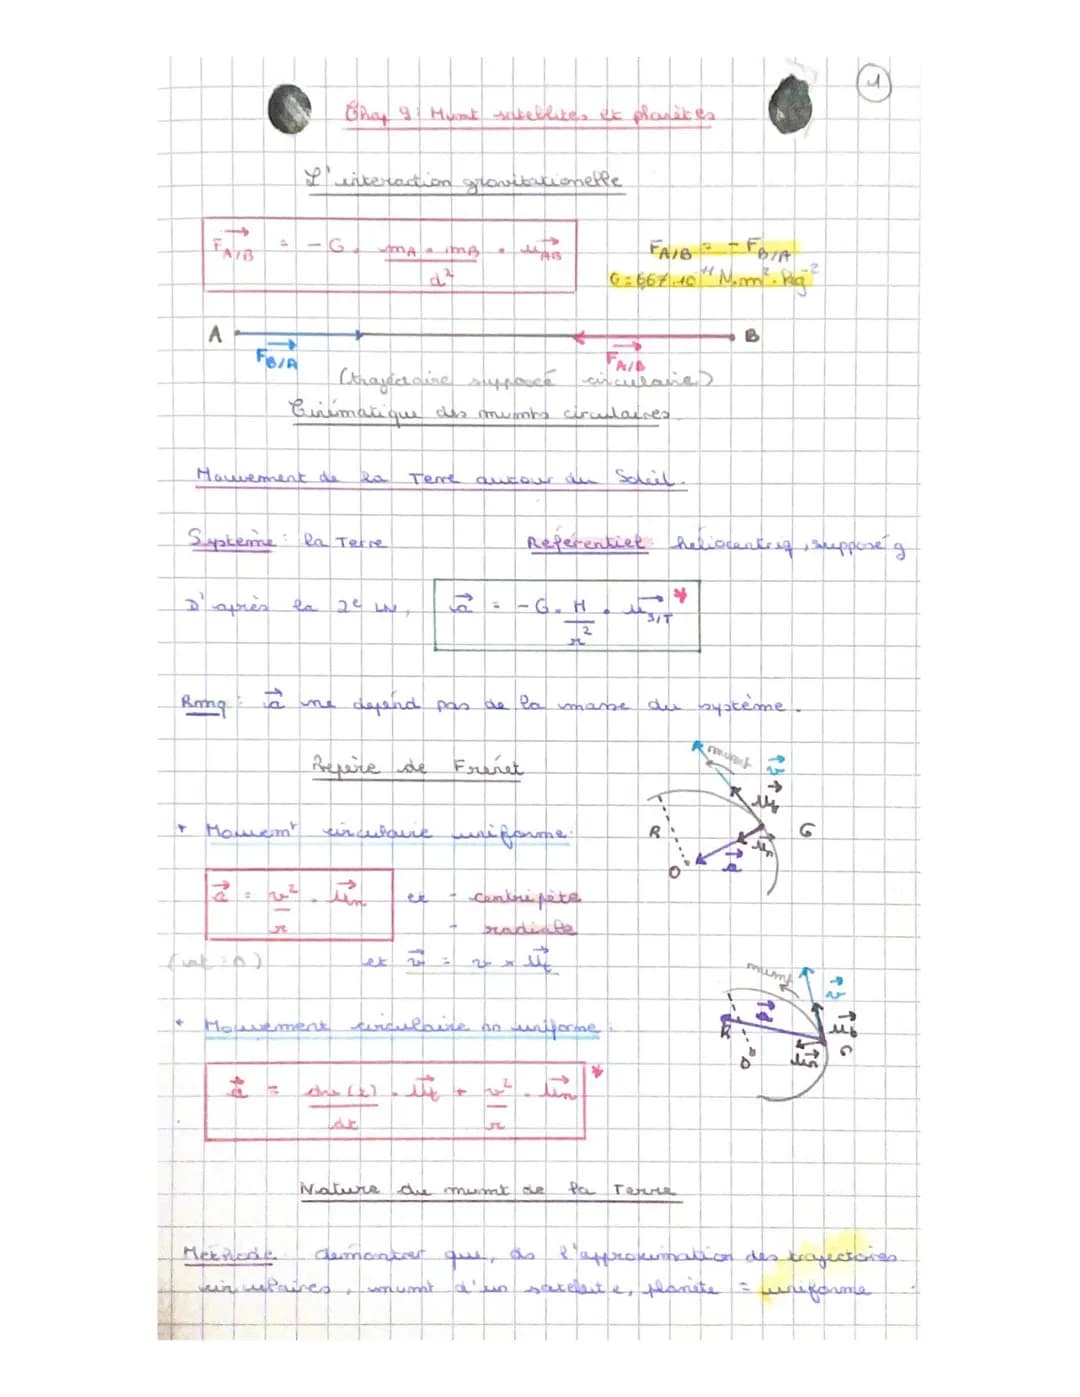 1
Chap 9 : Mvmt satellites et planètes
L'interaction gravitationelle
F A/B = - G . mA . mB / d² . u AB
F A/B = - F B/A
G = 6,67.10⁻¹¹ N.m².kg⁻²
A B
F B/A F A/B
(trajectoire supposée circulaire)
Cinématique des mvmts circulaires
Mouvement de la Terre autour du Soleil.
Système : la Terre Référentiel heliocentriq, supposé g
D'après la 2e LN, a = - G . M / r² . u S/T *
Rmq : a ne dépend pas de la masse du système.
Repère de Frénet
+ Mouvemt circulaire uniforme.
a = v² / r . un et - centripète
- radiale
et v = v × ut
mvmt v ut G un a O R
+ Mouvement circulaire nn uniforme :
a = dv(t) / dt . ut + v² / r . un *
mvmt v ut G un a O R
Nature du mvmt de la Terre
Méthode démontrer que, ds l'approximation des trajectoires
circulaires, mvmt d'un satelite, planète = uniforme.